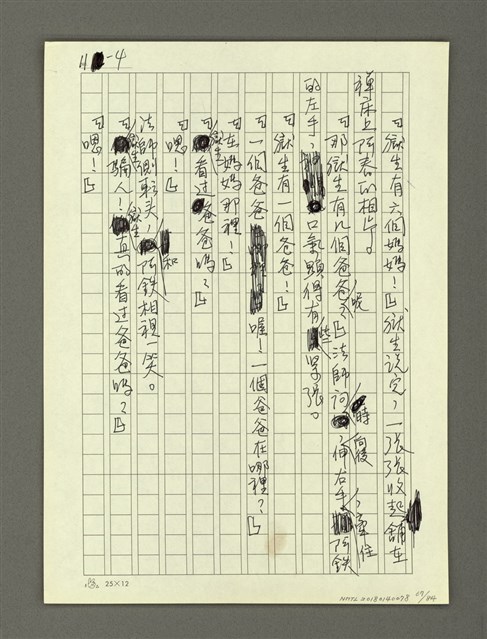 11-4
「獄生有六個媽媽！」獄生说完，一張張收起舖在
禪床上阿春的相片。
「那獄生有几個爸爸呢？」法師问時，向後伸右手，牽住阿鉄
的左手，口氣顯得有些緊張。
「獄生有一個爸爸！」
「一個爸爸喔！一個爸爸在哪裡？」
「在媽媽那裡！」
「獄生看过爸爸嗎？」
「嗯！」
法師側転头，和阿鉄相視一笑。
「獄生騙人！獄生真的看过爸爸嗎？」
「嗯！」
25×12
NMTL20180140078